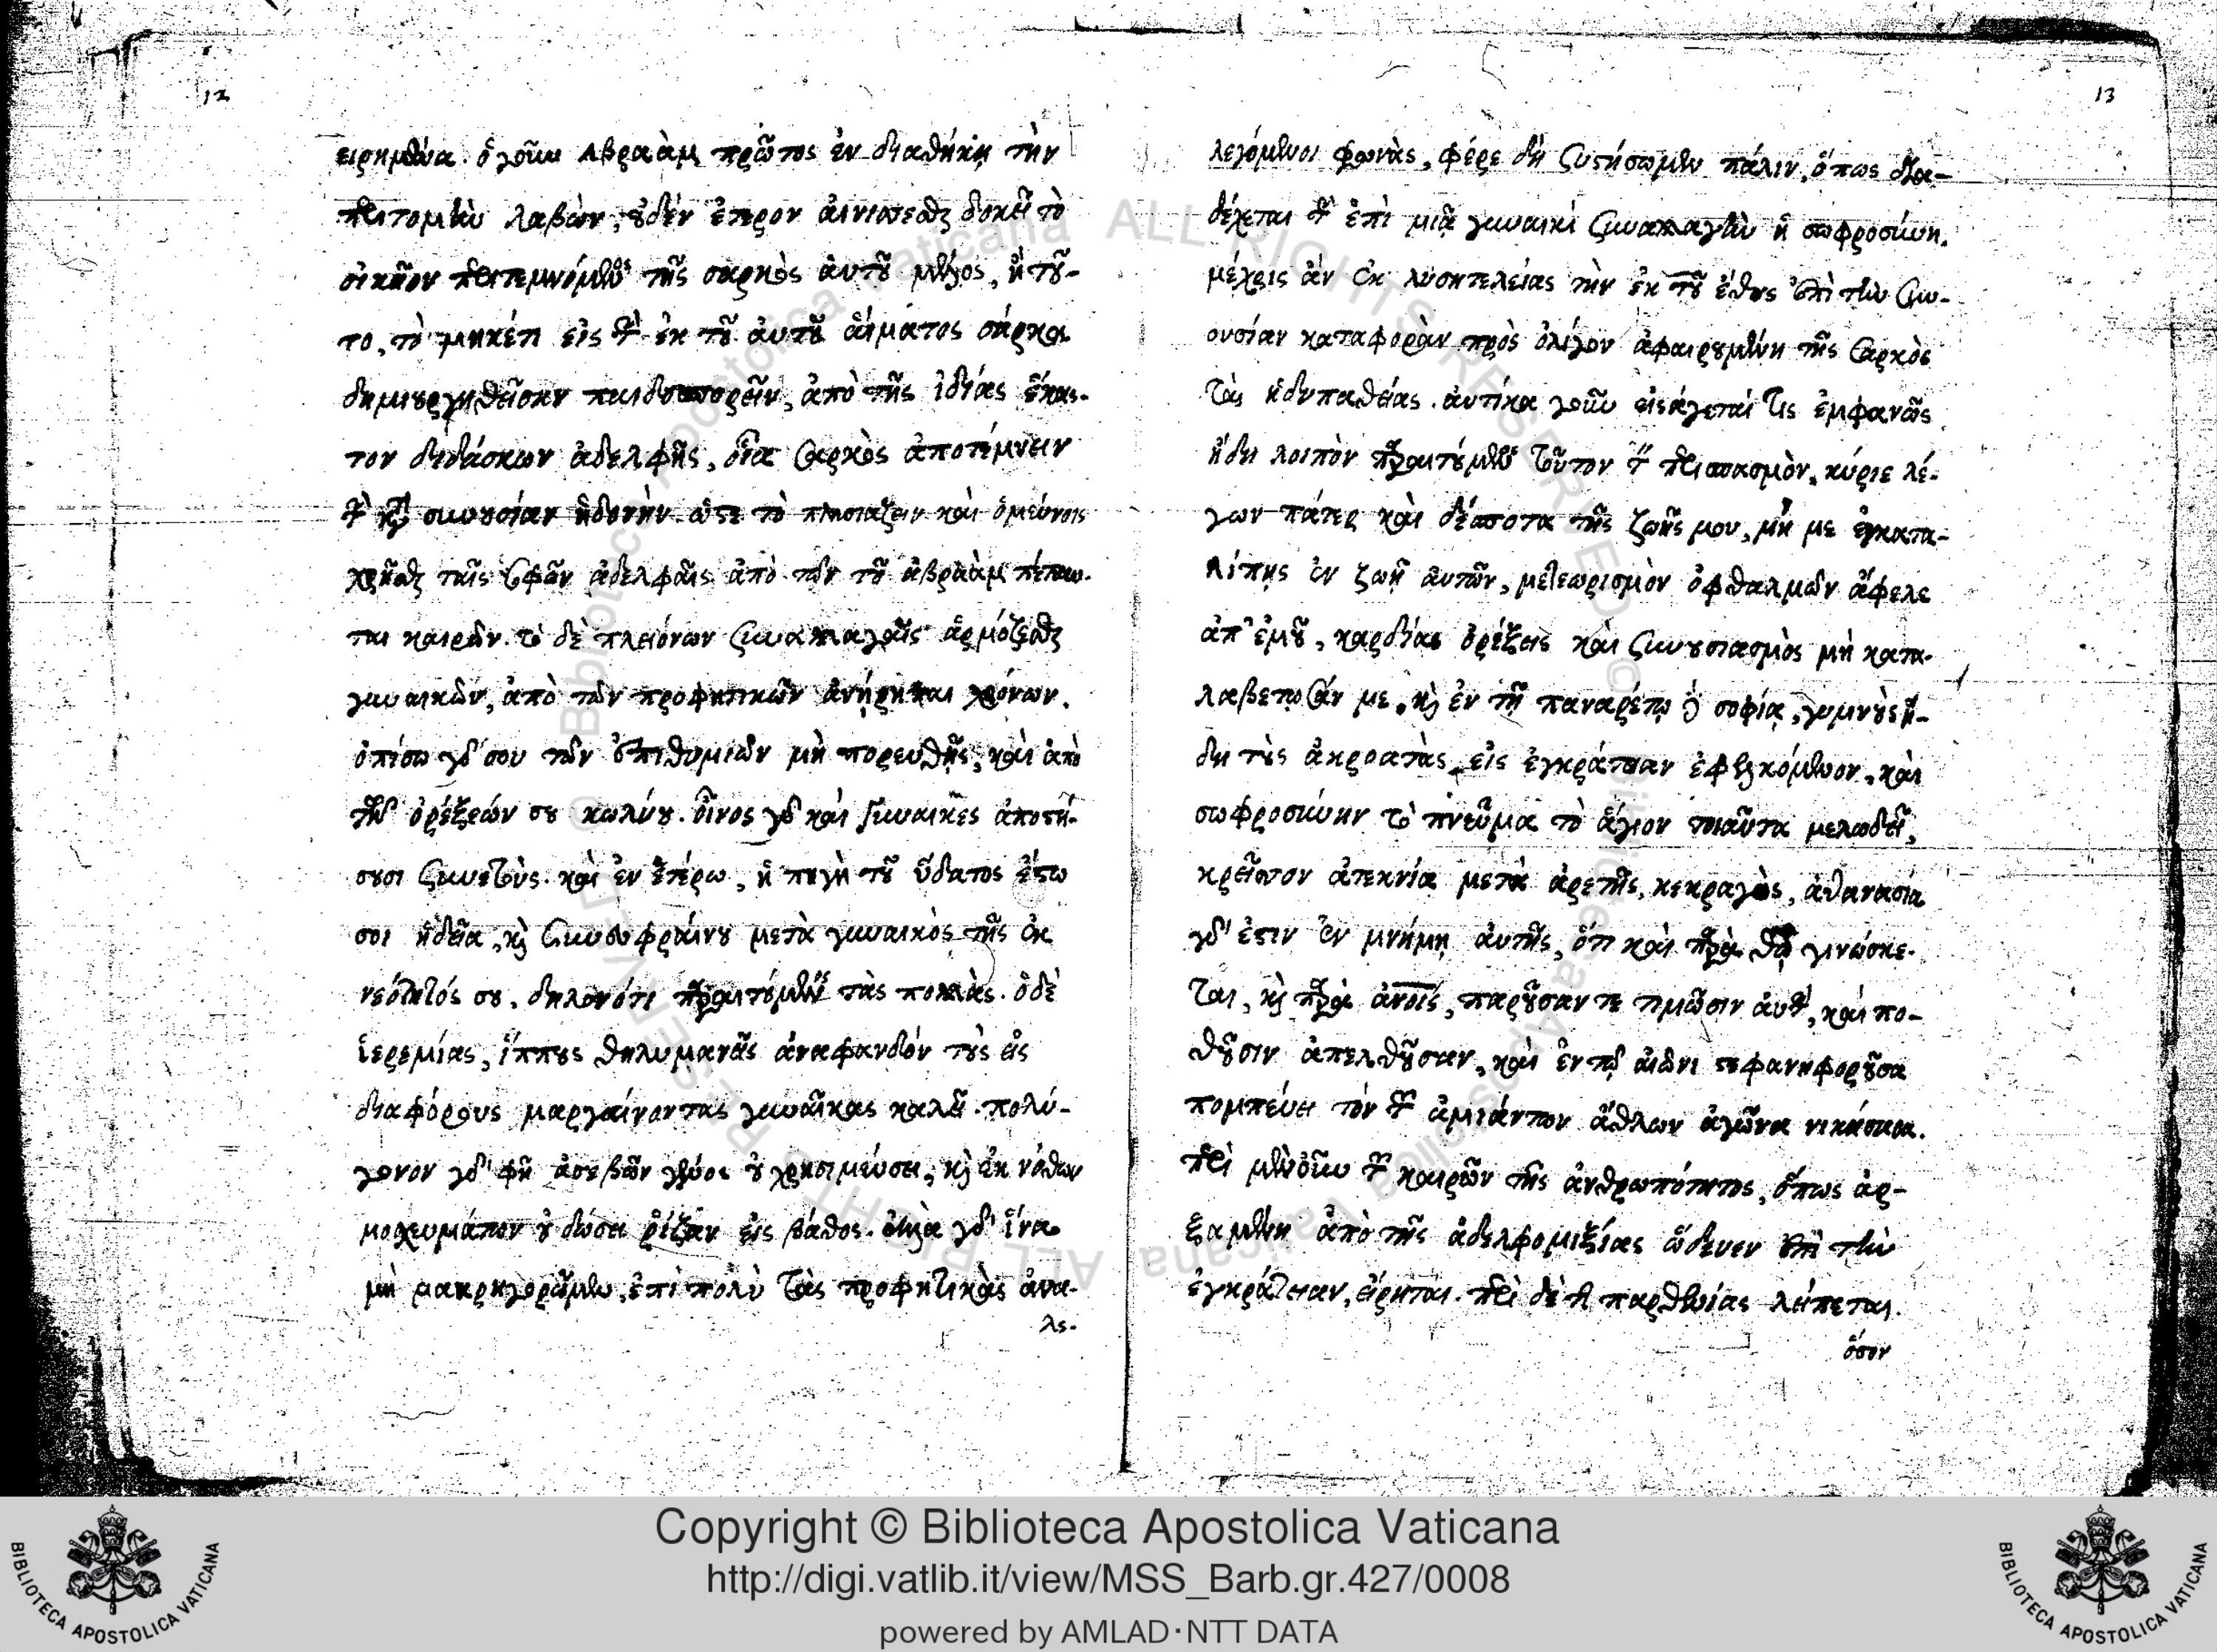 12
ειρημένα. ὁ γοῦν Ἀβραὰμ πρῶτος ἐν διαθήκῃ τὴν
περιτομὴν λαβὼν, οὐδὲν ἕτερον αἰνίττεσθαι δοκεῖ τὸ
οἰκεῖον περιτεμνόμενος τῆς σαρκὸς αὐτοῦ μέλος, ἢ τοῦ-
το, τὸ μηκέτι εἰς τὴν ἐκ τοῦ αὐτοῦ αἵματος σάρκα
δημιουργηθεῖσαν παιδοσπορεῖν, ἀπὸ τῆς ἰδίας ἕκασ-
τον διδάσκων ἀδελφῆς, δία σαρκὸς ἀποτέμνειν
τὴν κατὰ συνουσίαν ἡδονήν. ὥστε τὸ πλησιάζειν καὶ ὁμεύνοις
χρῆσθαι ταῖς σφῶν ἀδελφαῖς ἀπὸ τῶν τοῦ ἀβραὰμ πέπαυ-
ται καιρῶν. τὸ δὲ πλειόνων συναλλαγαῖς ἁρμόζεσθαι
γυναικῶν, ἀπὸ τῶν προφητικῶν ἀνῄρηται χρόνων.
ὀπίσω γάρ σου τῶν ἐπιθυμιῶν μὴ πορευθῇς, καὶ ἀπὸ
τῶν ὀρέξεών σου κωλύου. οἶνος γὰρ καὶ γυναῖκες ἀποστή-
σουσι συνετούς. καὶ ἐν ἑτέρῳ, ἡ πηγὴ τοῦ ὕδατος ἔστω
σοι ἰδεῖα, καὶ συνευφραίνου μετὰ γυναικὸς τῆς ἐκ
νεότητός σου, δηλονότι παραιτούμενος τὰς πολλάς. ὁ δὲ
ἱερεμίας, ἵππους θηλυμανεῖς ἀναφανδὸν τοὺς εἰς
διαφόρους μαργαίνοντας γυναῖκας καλεῖ. πολύ-
γονον γὰρ φῇ ἀσεβῶν γένος οὐ χρησιμεύσει, καὶ ἐκ νόθων
μοχευμάτων οὐ δώσει ῥίζαν εἰς βάθος. ἀλλὰ γὰρ ἵνα
μὴ μακρηγορῶμεν, ἐπὶ πολὺ τὰς προφητικὰς ἀνα-
λε-
13
λεγόμενοι φωνὰς, φέρε δὴ ζητήσωμεν πάλιν, ὅπως δια-
δέχεται τὴν ἐπὶ μιᾷ γυναικὶ συναλλαγὴν ἡ σωφροσύνη.
μέχρις ἂν ἐκ λυσητελείας τὴν ἐκ τοῦ ἔθους ἐπὶ τὴν συν-
ουσίαν καταφορὰν πρὸς ὀλίγον ἀφαιρουμένη τῆς σαρκὸς
τὰς ἡδυπαθείας. αὐτίκα γοῦν εἰσάγεταί τις ἐμφανῶς
ἤδη λοιπὸν παραιτούμενος τοῦτον τὸν περισπασμὸν, κύριε λέ-
γων πάτερ καὶ δέσποτα τῆς ζωῆς μου, μή με ἐγκατα-
λίπῃς ἐν ζωῇ αὐτῶν, μετεωρισμὸν ὀφθαλμῶν ἄφελε
ἀπ' ἐμοῦ, καρδίας ὀρέξεις καὶ συνουσιασμὸς μὴ κατα-
λαβέτωσάν με. καὶ ἐν τῇ παναρέτῳ δὲ σοφίᾳ, γυμνοὺς ἤ-
δη τοὺς ἀκροατὰς εἰς ἐγκράτειαν ἐφελκόμενον, καὶ
σωφροσύνην τὸ πνεῦμα τὸ ἅγιον τοιαῦτα μελῳδεῖ,
κρεῖττον ἀτεκνία μετὰ ἀρετῆς, κεκραγὼς, ἀθανασία
γάρ ἐστιν ἐν μνήμῃ αὐτῆς, ὅτι καὶ παρὰ θεῷ γινώσκε-
ται, καὶ παρὰ ἀνοις, παροῦσαν τε τιμῶσιν αὐτὴν, καὶ πο-
θοῦσιν ἀπελθοῦσαν, καὶ ἐν τῷ αἰῶνι στεφανηφοροῦσα
πομπεύει τὸν τῶν ἀμιάντων ἄθλων ἀγῶνα νικήσασα.
περὶ μὲν οὖν τῶν καιρῶν τῆς ἀνθρωπότητος, ὅπως ἀρ-
ξαμένη ἀπὸ τῆς ἀδελφομιξίας ὥδευεν ἐπὶ τὴν
ἐγκράτειαν, εἴρηται. περὶ δὲ τῆς παρθενίας λείπεται.
ὅσον
Copyright © Biblioteca Apostolica Vaticana
http://digi.vatlib.it/view/MSS_Barb.gr.427/0008
powered by AMLAD·NTT DATA
BIBLIOTECA APOSTOLICA VATICANA
BIBLIOTECA APOSTOLICA VATICANA